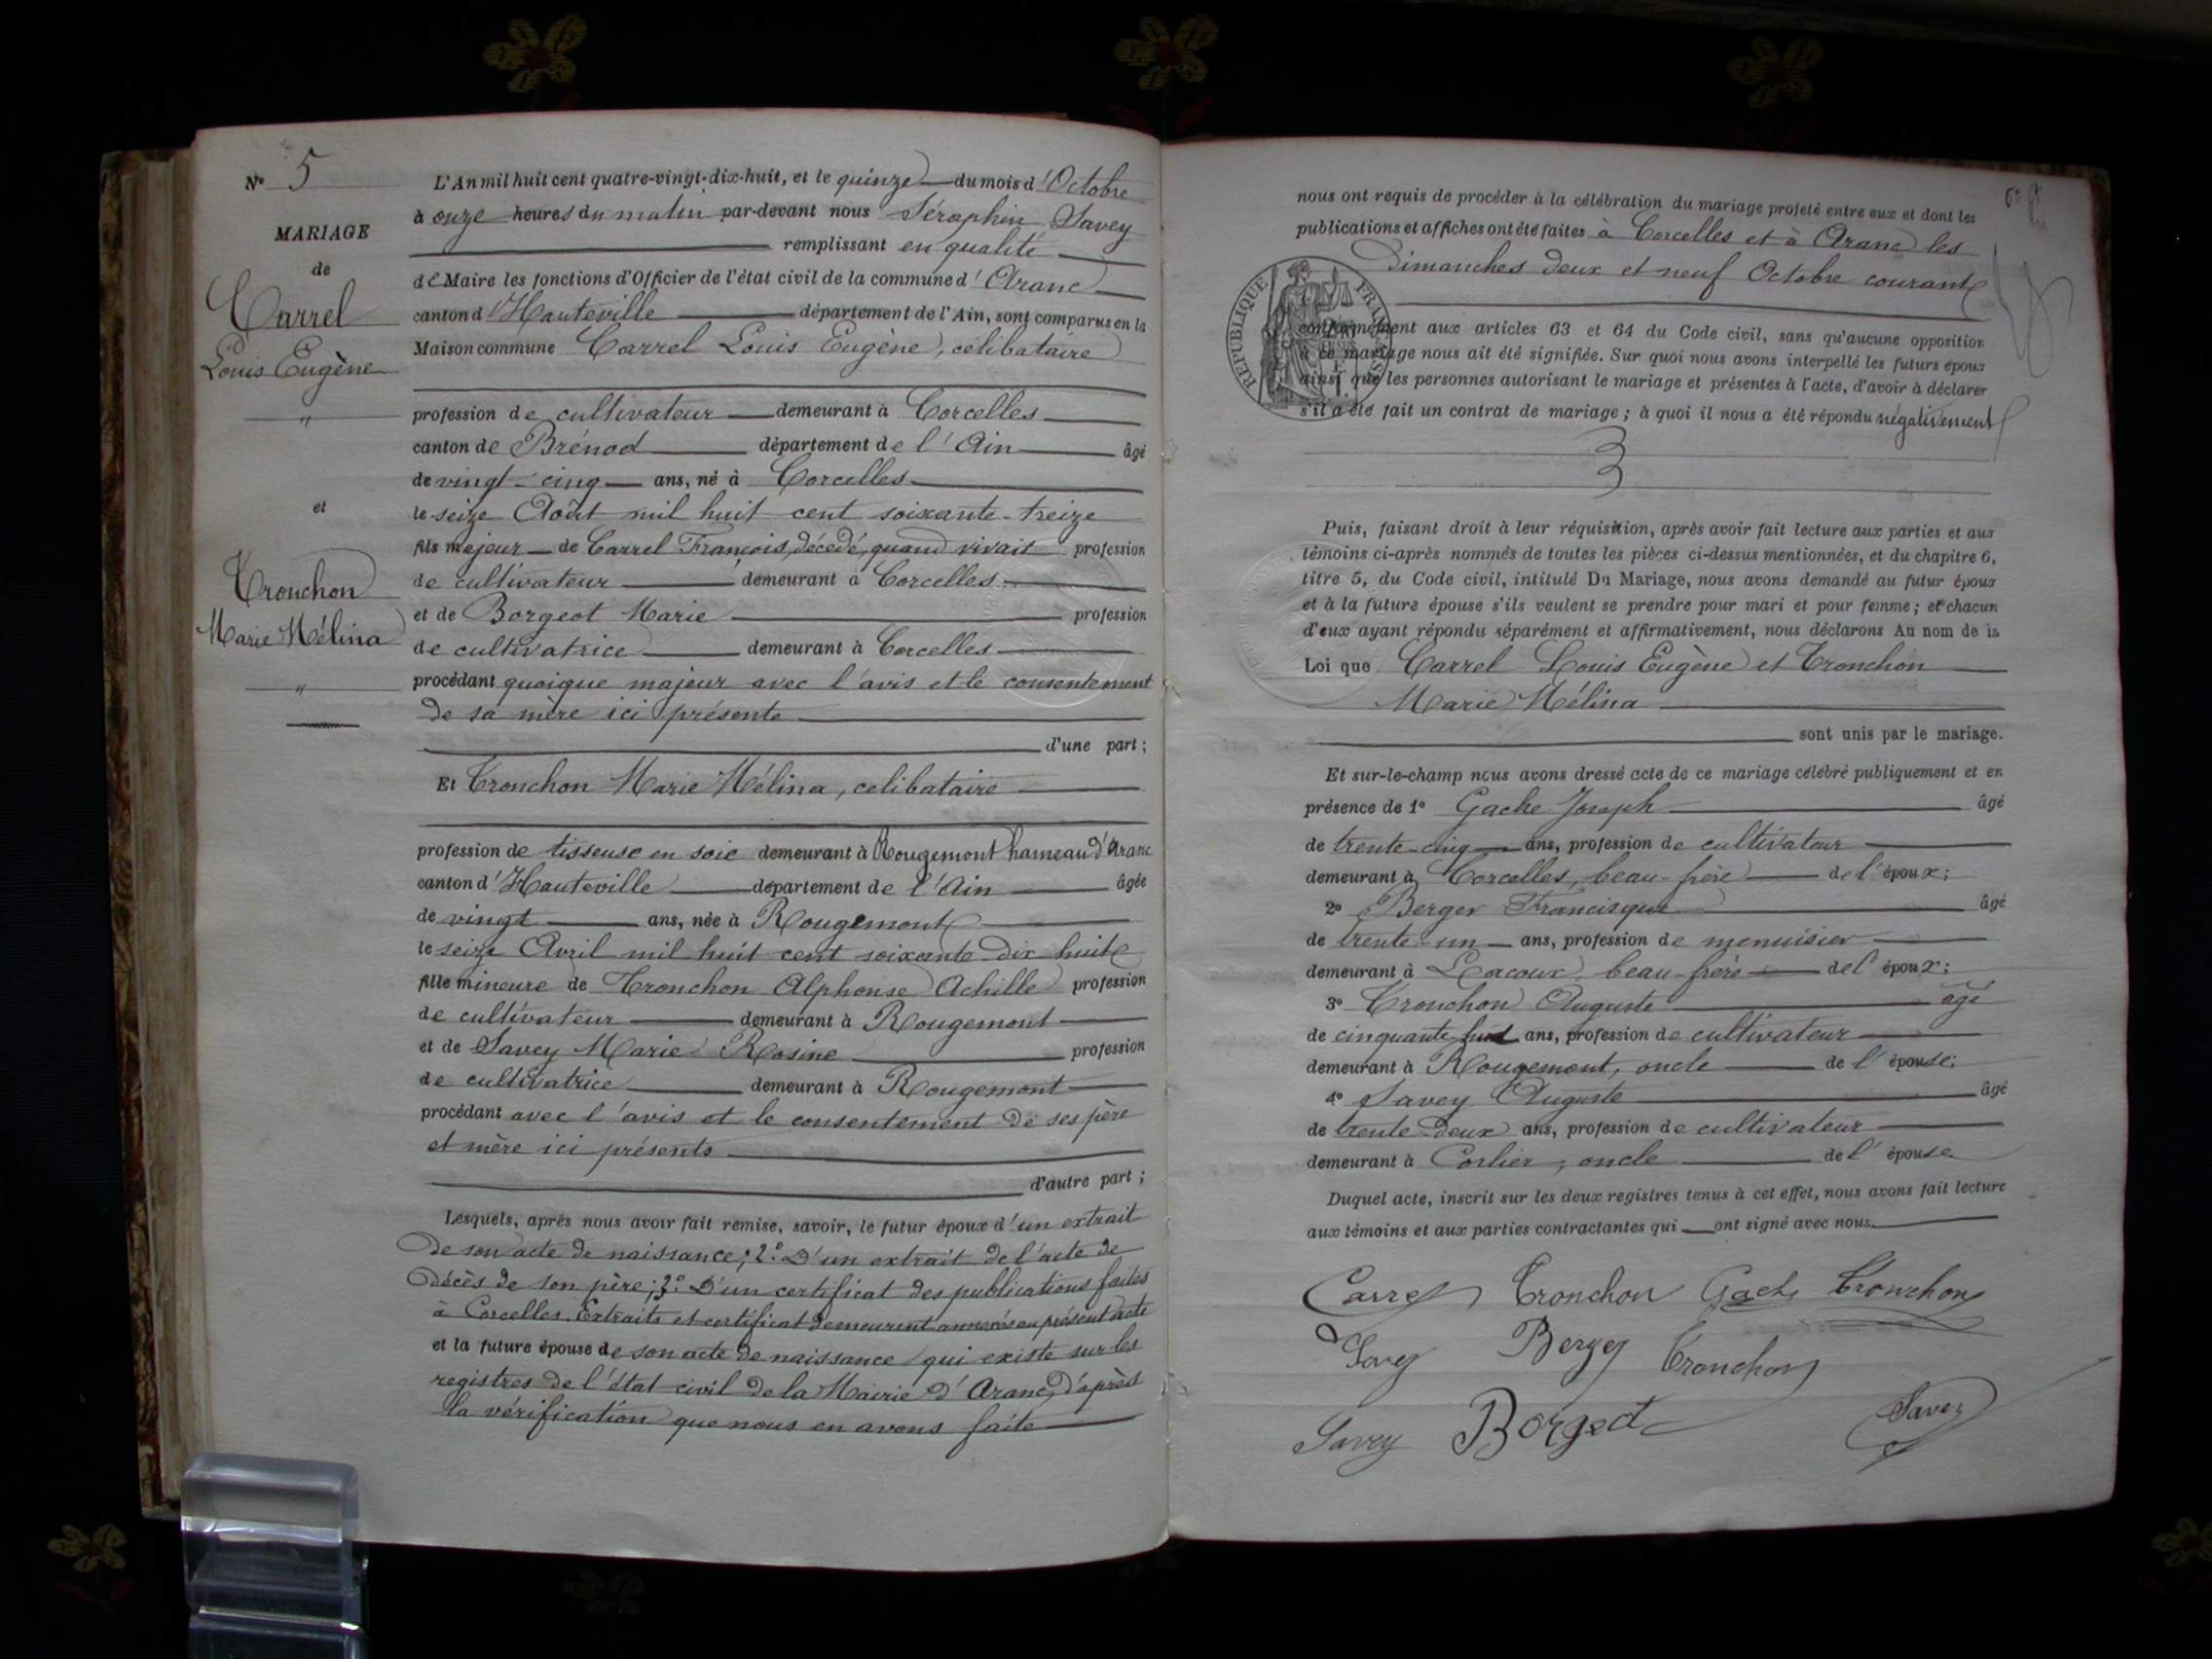 Nº 5
MARIAGE
de
Carrel
Louis Eugène
"
et
Tronchon
Marie Mélina
"
L'An mil huit cent quatre-vingt-dix-huit, et le quinze du mois d'Octobre
à onze heures du matin par-devant nous Séraphin Savey
remplissant en qualité
de Maire les fonctions d'Officier de l'état civil de la commune d'Aranc
canton d'Hauteville département de l'Ain, sont comparus en la
Maison commune Carrel Louis Eugène, célibataire
profession de cultivateur demeurant à Corcelles
canton de Brénod département de l'Ain âgé
de vingt-cinq ans, né à Corcelles
le seize Août mil huit cent soixante-treize
fils majeur de Carrel François, décédé, quand vivait profession
de cultivateur demeurant à Corcelles
et de Borgeot Marie profession
de cultivatrice demeurant à Corcelles
procédant quoique majeur avec l'avis et le consentement
de sa mère ici présente
d'une part ;
Et Tronchon Marie Mélina, celibataire
profession de tisseuse en soie demeurant à Rougemont hameau d'Aranc
canton d'Hauteville département de l'Ain âgée
de vingt ans, née à Rougemont
le seize Avril mil huit cent soixante dix huit
fille mineure de Tronchon Alphonse Achille profession
de cultivateur demeurant à Rougemont
et de Savey Marie Rosine profession
de cultivatrice demeurant à Rougemont
procédant avec l'avis et le consentement de ses père
et mère ici présents
d'autre part ;
Lesquels, après nous avoir fait remise, savoir, le futur époux d'un extrait
de son acte de naissance ; 2º D'un extrait de l'acte de
décès de son père ; 3º D'un certificat des publications faites
à Corcelles. Extraits et certificat demeurent annexés au présent acte
et la future épouse de son acte de naissance qui existe sur les
registres de l'état civil de la Mairie d'Aranc, d'après
la vérification que nous en avons faite
nous ont requis de procéder à la célébration du mariage projeté entre eux et dont les
publications et affiches ont été faites à Corcelles et à Aranc les
Dimanches deux et neuf Octobre courant
RÉPUBLIQUE FRANÇAISE
conformément aux articles 63 et 64 du Code civil, sans qu'aucune opposition
à ce mariage nous ait été signifiée. Sur quoi nous avons interpellé les futurs époux
ainsi que les personnes autorisant le mariage et présentes à l'acte, d'avoir à déclarer
s'il a été fait un contrat de mariage ; à quoi il nous a été répondu négativement
Puis, faisant droit à leur réquisition, après avoir fait lecture aux parties et aux
témoins ci-après nommés de toutes les pièces ci-dessus mentionnées, et du chapitre 6,
titre 5, du Code civil, intitulé Du Mariage, nous avons demandé au futur époux
et à la future épouse s'ils veulent se prendre pour mari et pour femme ; et chacun
d'eux ayant répondu séparément et affirmativement, nous déclarons Au nom de la
Loi que Carrel Louis Eugène et Tronchon
Marie Mélina
sont unis par le mariage.
Et sur-le-champ nous avons dressé acte de ce mariage célébré publiquement et en
présence de 1º Gache Joseph âgé
de trente-cinq ans, profession de cultivateur
demeurant à Corcelles, beau-frère de l'époux ;
2º Berger Francisque âgé
de trente-un ans, profession de menuisier
demeurant à Lacoux, beau-frère de l'époux ;
3º Tronchon Auguste âgé
de cinquante huit ans, profession de cultivateur
demeurant à Rougemont, oncle de l'épouse ;
4º Savey Auguste âgé
de trente-deux ans, profession de cultivateur
demeurant à Corlier, oncle de l'épouse
Duquel acte, inscrit sur les deux registres tenus à cet effet, nous avons fait lecture
aux témoins et aux parties contractantes qui ont signé avec nous.
Carrel Tronchon Gache Tronchon
Savey Berger Tronchon
Savey Borgeot Savey